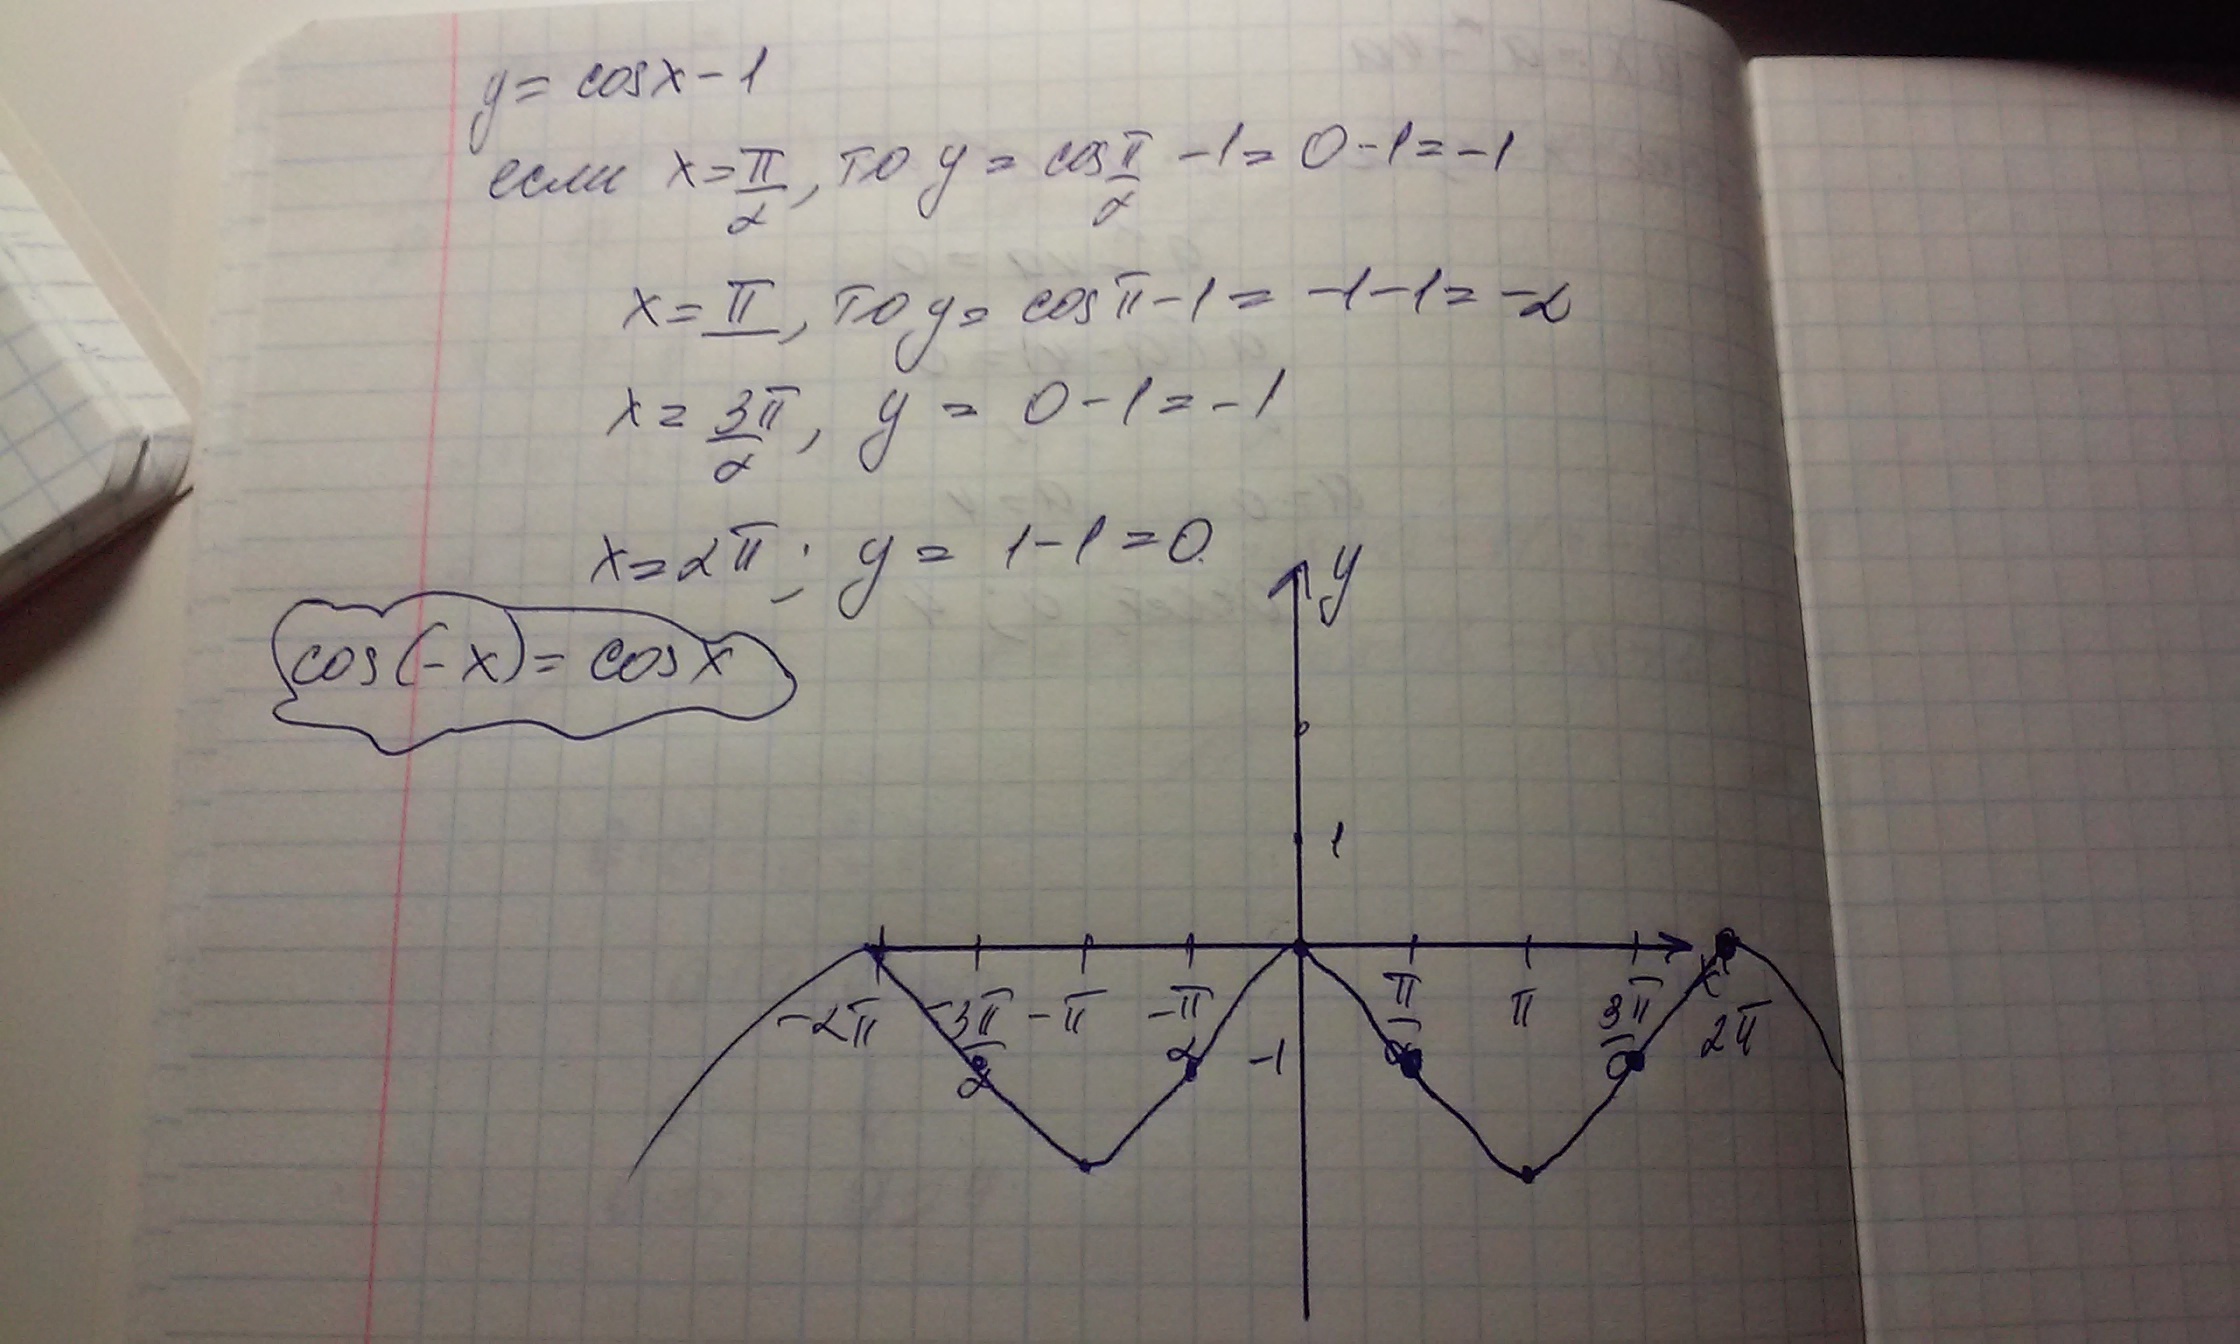 y = cosx - 1
если x = π/2, то y = cos π/2 - 1 = 0 - 1 = -1
x = π, то y = cos π - 1 = -1 - 1 = -2
x = 3π/2, y = 0 - 1 = -1
x = 2π; y = 1 - 1 = 0
cos(-x) = cosx
y
1
-2π -3π/2 -π -π/2 -1 π/2 π 3π/2 x 2π